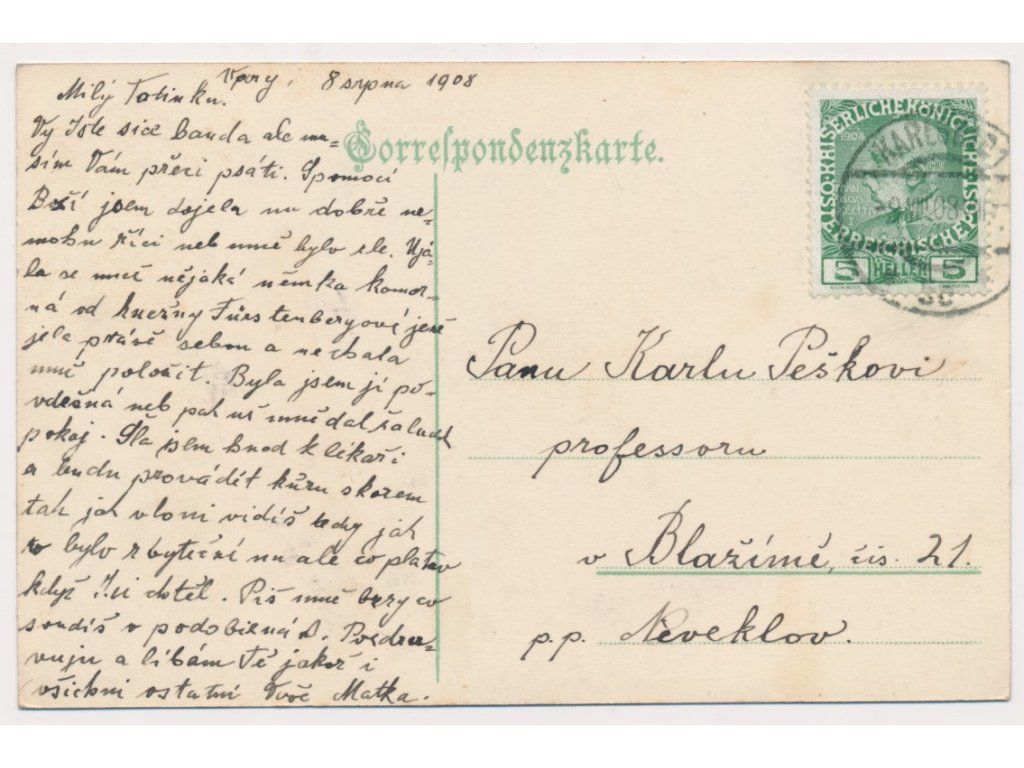 Vary, 8 srpna 1908
Milý Tatínku.
Vy Jste sice banda ale mu-
sím Vám přeci psáti. S pomocí
Boží jsem dojela na dobře ne-
mohu říci neb mně bylo zle. Ujá-
la se mně nějaká němka komor-
ná od kněžny Fürstenbergové jenž
jela právě sebou a nechala
mně položit. Byla jsem jí po-
vděčná neb pak už mně dal žaludek
pokoj. Šla jsem hned k lékaři
a budu provádět kůru skorem
tak jak vloni vidíš tedy jak
to bylo zbytečné nu ale co platno
když Jsi chtěl. Piš mně brzy co
soudíš o podobiznách. Pozdra-
vuju a líbám Tě jakož i
všichni ostatní Tvoč Matka.
Correspondenzkarte.
KAISERLICHE KÖNIGLICHE ÖSTERREICHISCHE POST
1908
5 HELLER 5
KARL
VIII 08
Panu Karlu Peškovi
professoru
v Blažímě, čís. 21.
p.p. Neveklov.